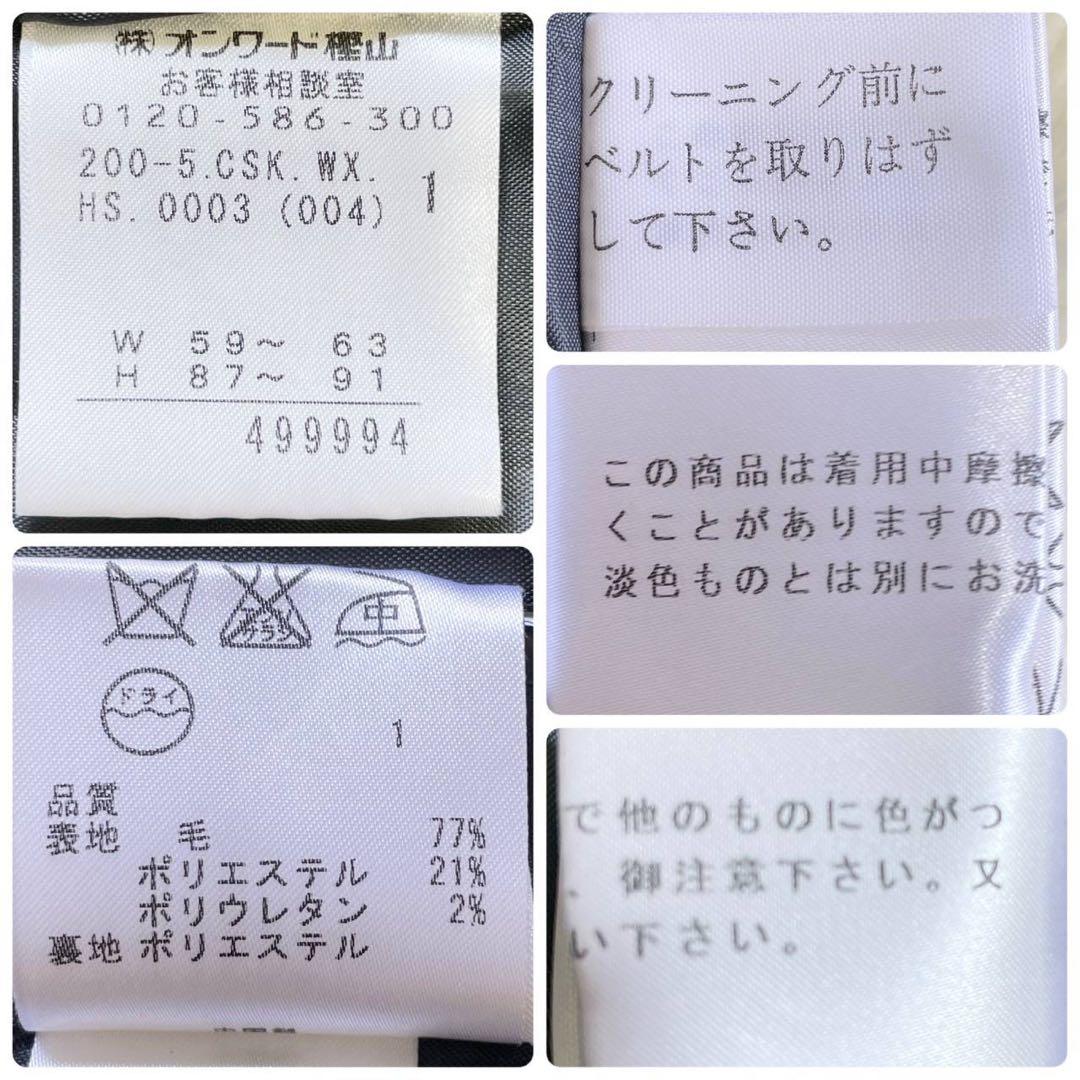 (株)オンワード樫山
お客様相談室
0120-586-300
200-5.CSK.WX.
HS.0003 (004) 1
W 59〜 63
H 87〜 91
499994
クリーニング前に
ベルトを取りはず
して下さい。
この商品は着用中摩擦
くことがありますので
淡色ものとは別にお洗
エンソ
サラシ
中
ドライ
1
品質
表地 毛 77%
ポリエステル 21%
ポリウレタン 2%
裏地 ポリエステル
で他のものに色がつ
、御注意下さい。又
い下さい。